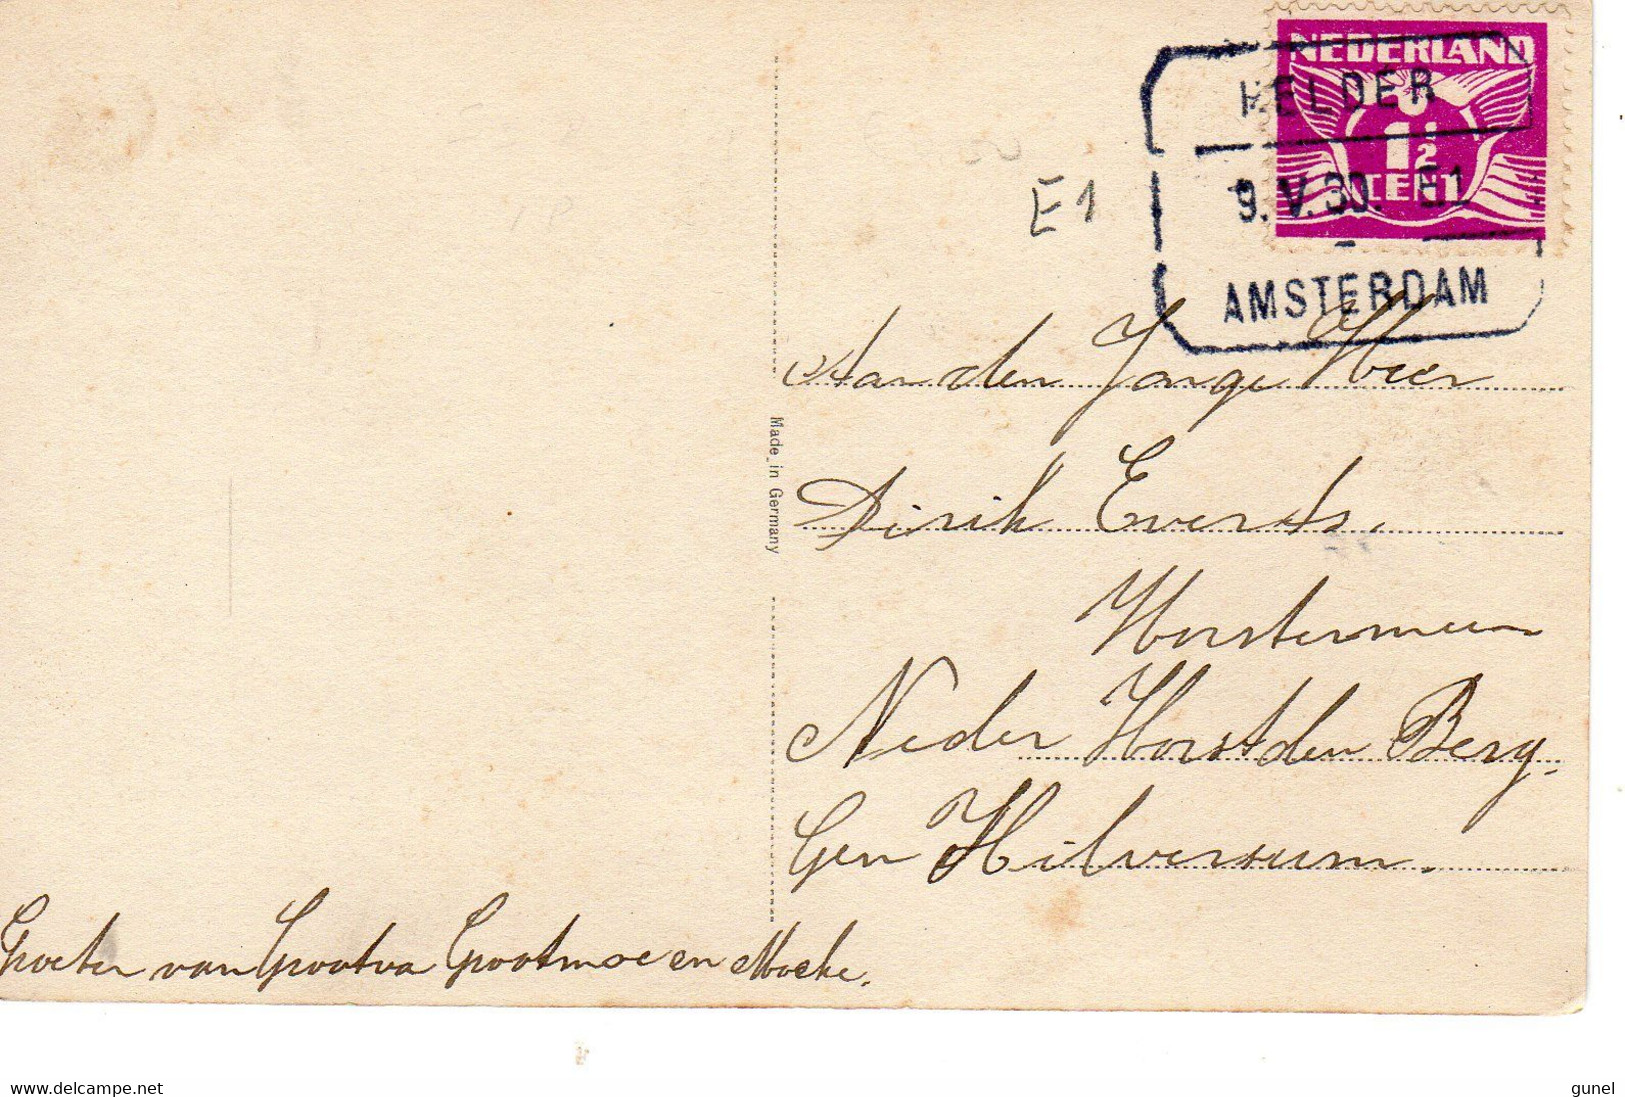 NEDERLAND
1½
CENT
HELDER
9.V.30. E1
AMSTERDAM
E1
Aan den Jonge Heer
Dirik Everts.
Horstermeer
Neder Horst den Berg.
Gen Hilversum.
Made in Germany
Groeten van Grootva Grootmoe en Moeke.
www.delcampe.net
gunel